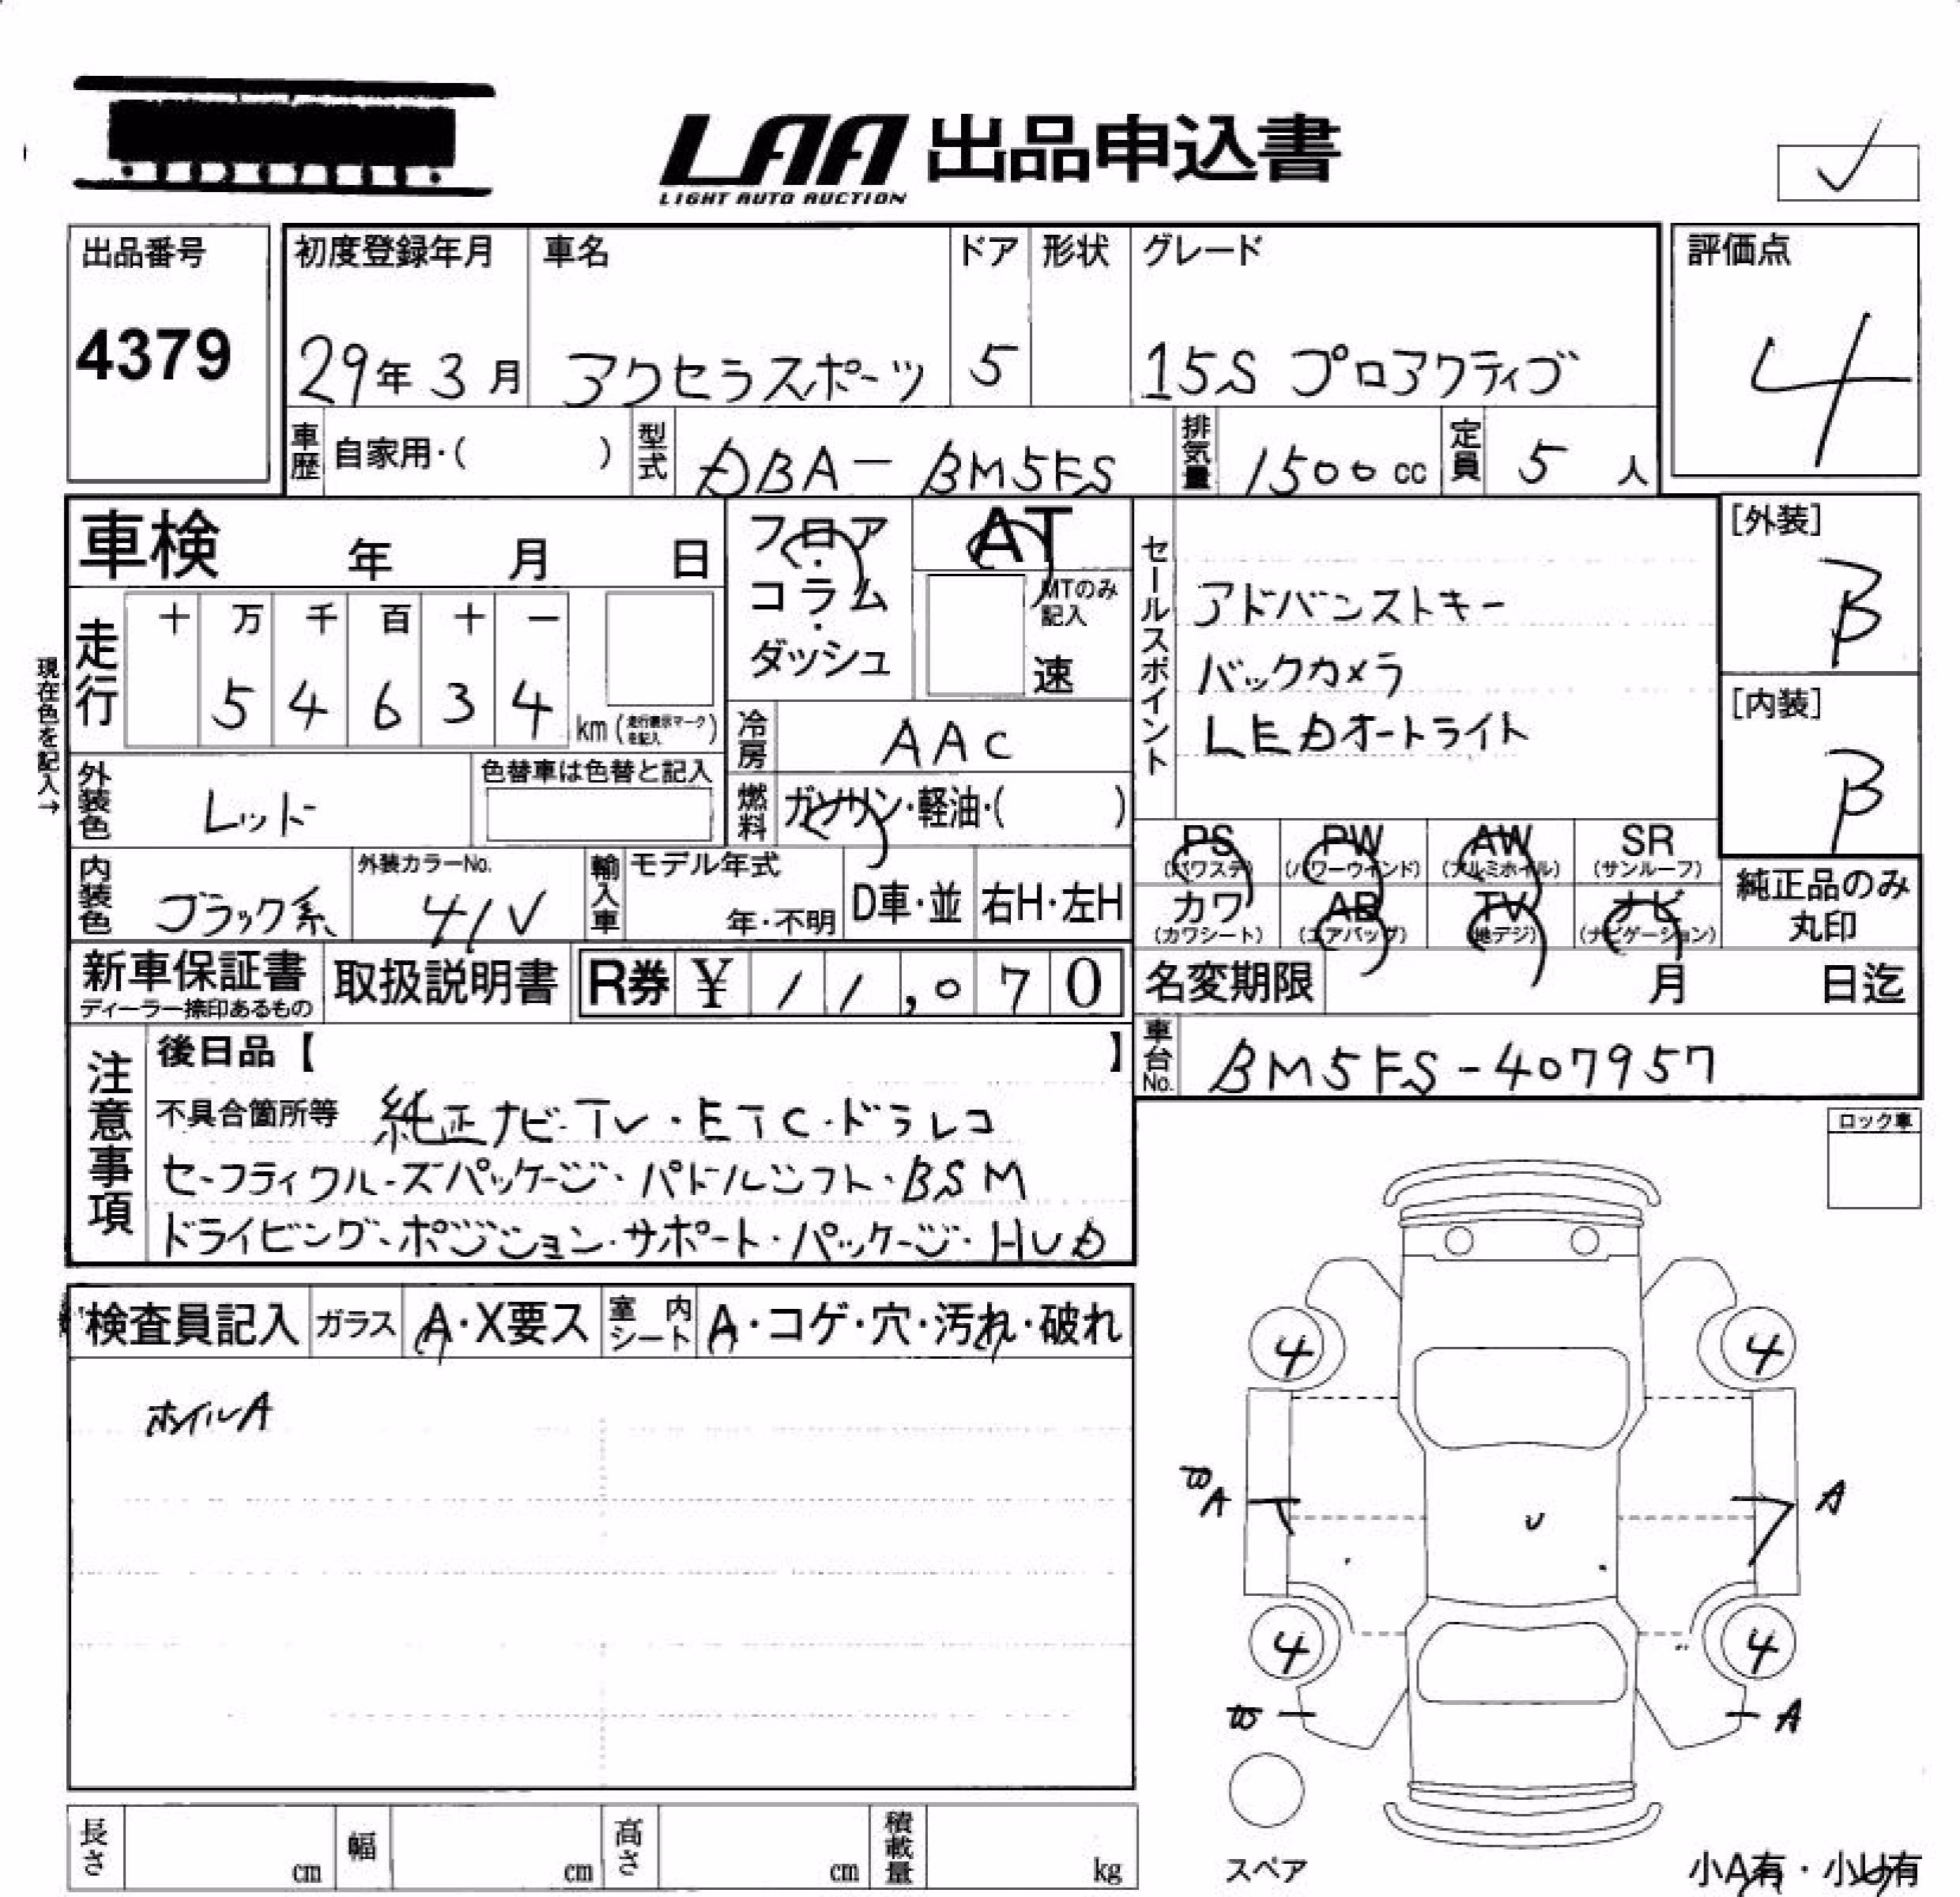 LAA 出品申込書
LIGHT AUTO AUCTION
出品番号
4379
初度登録年月 車名 ドア 形状 グレード
29年 3月 アクセラスポーツ 5 15S プロアクティブ
評価点
4
車歴 自家用・( ) 型式 DBA-BM5FS 排気量 1500cc 定員 5人
車検 年 月 日
フロア・コラム・ダッシュ
AT
MTのみ記入
速
セールスポイント
アドバンストキー
バックカメラ
LEDオートライト
[外装]
B
[内装]
B
現在色を記入→
走行 十 万 千 百 十 一
5 4 6 3 4 km (走行表示マークを記入)
冷房 AAC
外装色 レッド 色替車は色替と記入
燃料 ガソリン・軽油・( )
PS (パワステ) PW (パワーウインド) AW (アルミホイル) SR (サンルーフ)
カワ (カワシート) AB (エアバッグ) TV (地デジ) ナビ (ナビゲーション)
純正品のみ丸印
内装色 ブラック系 外装カラーNo. 41V 輸入車 モデル年式 年・不明 D車・並 右H・左H
新車保証書 ディーラー捺印あるもの 取扱説明書 R券 ¥11,070
名変期限 月 日迄
車台No. BM5FS-407957
注意事項
後日品【 】
不具合箇所等 純正ナビ・TV・ETC・ドラレコ
セーフティクルーズパッケージ・パドルシフト・BSM
ドライビング・ポジション・サポート・パッケージ・HUD
ロック車
検査員記入 ガラス A・X要ス 室内シート A・コゲ・穴・汚れ・破れ
ホイルA
4 4
A A
U
4 4
A
スペア
小A有・小U有
長さ cm 幅 cm 高さ cm 積載量 kg